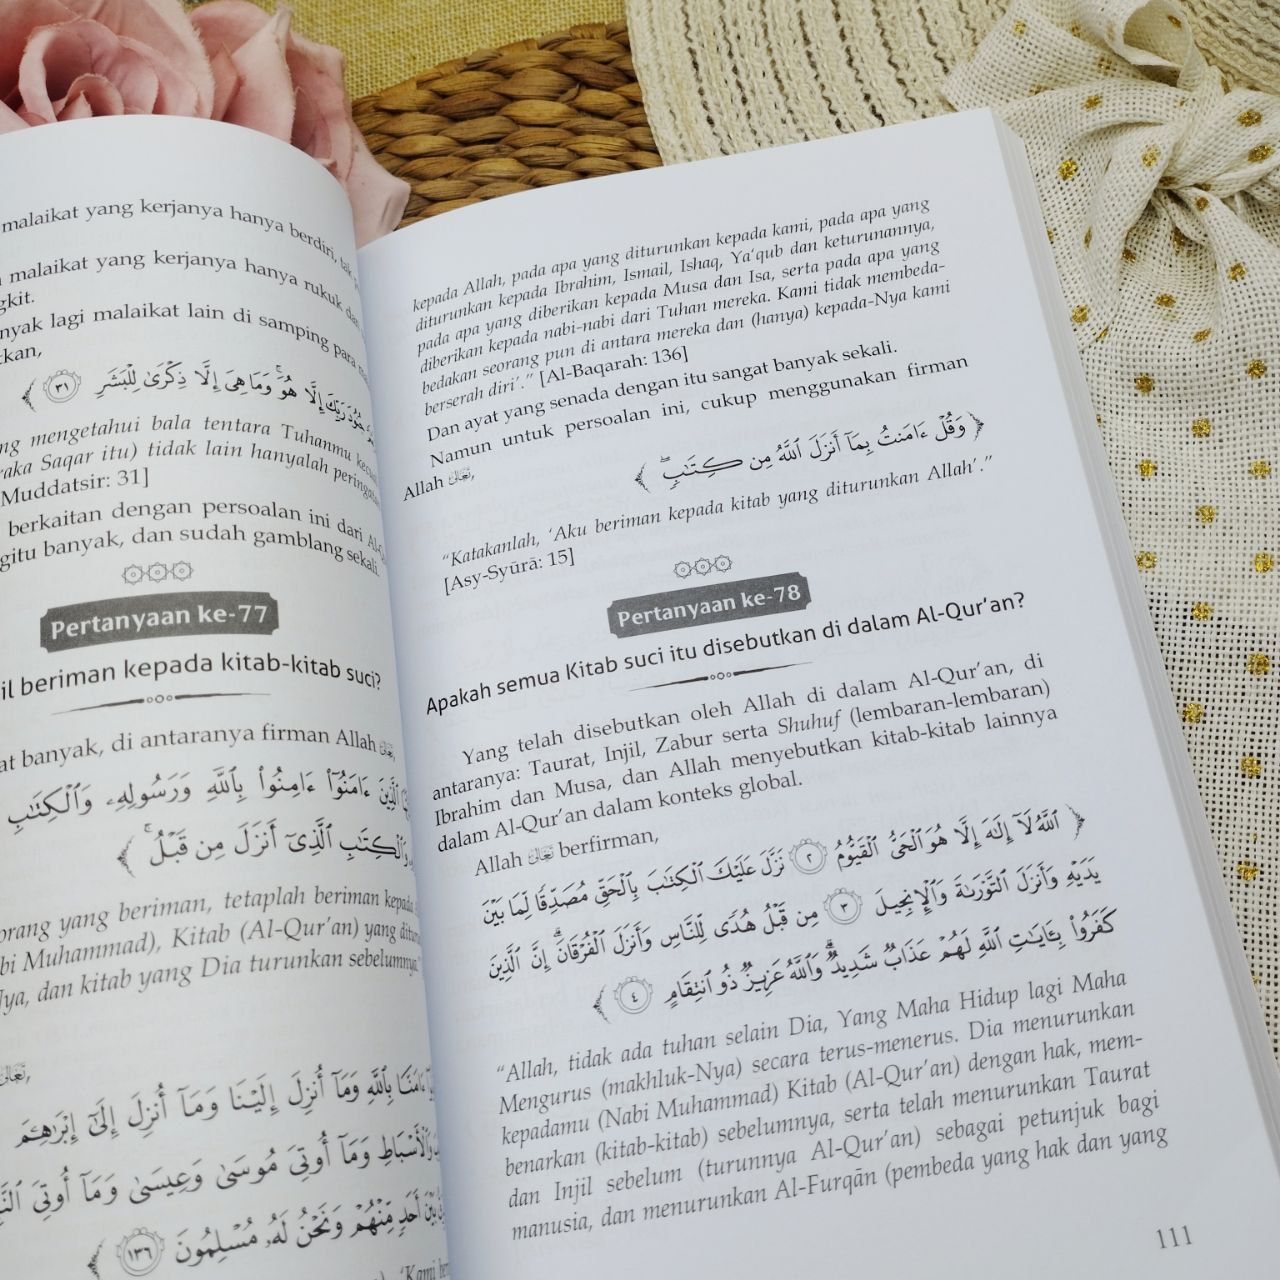 malaikat yang kerjanya hanya berdiri,
malaikat yang kerjanya hanya rukuk dan
lagi malaikat lain di samping para
﴾ وَمَا هِيَ إِلَّا ذِكْرَىٰ لِلْبَشَرِ ٣١ ﴿
mengetahui bala tentara Tuhanmu
Saqar itu) tidak lain hanyalah
Muddatsir: 31]
berkaitan dengan persoalan ini dari
banyak, dan sudah gamblang sekali.
Pertanyaan ke-77
beriman kepada kitab-kitab suci?
banyak, di antaranya firman Allah تعالى,
ءَامَنُوٓا۟ ءَامِنُوا۟ بِٱللَّهِ وَرَسُولِهِۦ وَٱلْكِتَٰبِ
وَٱلْكِتَٰبِ ٱلَّذِىٓ أَنزَلَ مِن قَبْلُ ۚ
yang beriman, tetaplah beriman kepada
Muhammad), Kitab (Al-Qur'an) yang
dan kitab yang Dia turunkan sebelumnya.
تعالى,
بِٱللَّهِ وَمَآ أُنزِلَ إِلَيْنَا وَمَآ أُنزِلَ إِلَىٰٓ إِبْرَٰهِـۧمَ
وَٱلْأَسْبَاطِ وَمَآ أُوتِىَ مُوسَىٰ وَعِيسَىٰ وَمَآ أُوتِىَ
بَيْنَ أَحَدٍ مِّنْهُمْ وَنَحْنُ لَهُۥ مُسْلِمُونَ ١٣٦
'Kami
kepada Allah, pada apa yang diturunkan kepada kami, pada apa yang
diturunkan kepada Ibrahim, Ismail, Ishaq, Ya'qub dan keturunannya,
pada apa yang diberikan kepada Musa dan Isa, serta pada apa yang
diberikan kepada nabi-nabi dari Tuhan mereka. Kami tidak membeda-
bedakan seorang pun di antara mereka dan (hanya) kepada-Nya kami
berserah diri'." [Al-Baqarah: 136]
Dan ayat yang senada dengan itu sangat banyak sekali.
Namun untuk persoalan ini, cukup menggunakan firman
Allah تعالى,
﴿ وَقُلْ ءَامَنتُ بِمَآ أَنزَلَ ٱللَّهُ مِن كِتَٰبٍ ۖ ﴾
"Katakanlah, 'Aku beriman kepada kitab yang diturunkan Allah'."
[Asy-Syūrā: 15]
Pertanyaan ke-78
Apakah semua Kitab suci itu disebutkan di dalam Al-Qur'an?
Yang telah disebutkan oleh Allah di dalam Al-Qur'an, di
antaranya: Taurat, Injil, Zabur serta Shuhuf (lembaran-lembaran)
Ibrahim dan Musa, dan Allah menyebutkan kitab-kitab lainnya
dalam Al-Qur'an dalam konteks global.
Allah تعالى berfirman,
﴿ ٱللَّهُ لَآ إِلَٰهَ إِلَّا هُوَ ٱلْحَىُّ ٱلْقَيُّومُ ٢ نَزَّلَ عَلَيْكَ ٱلْكِتَٰبَ بِٱلْحَقِّ مُصَدِّقًا لِّمَا بَيْنَ
يَدَيْهِ وَأَنزَلَ ٱلتَّوْرَىٰةَ وَٱلْإِنجِيلَ ٣ مِن قَبْلُ هُدًى لِّلنَّاسِ وَأَنزَلَ ٱلْفُرْقَانَ ۗ إِنَّ ٱلَّذِينَ
كَفَرُوا۟ بِـَٔايَٰتِ ٱللَّهِ لَهُمْ عَذَابٌ شَدِيدٌ ۗ وَٱللَّهُ عَزِيزٌ ذُو ٱنتِقَامٍ ٤ ﴾
"Allah, tidak ada tuhan selain Dia, Yang Maha Hidup lagi Maha
Mengurus (makhluk-Nya) secara terus-menerus. Dia menurunkan
kepadamu (Nabi Muhammad) Kitab (Al-Qur'an) dengan hak, mem-
benarkan (kitab-kitab) sebelumnya, serta telah menurunkan Taurat
dan Injil sebelum (turunnya Al-Qur'an) sebagai petunjuk bagi
manusia, dan menurunkan Al-Furqān (pembeda yang hak dan yang
111